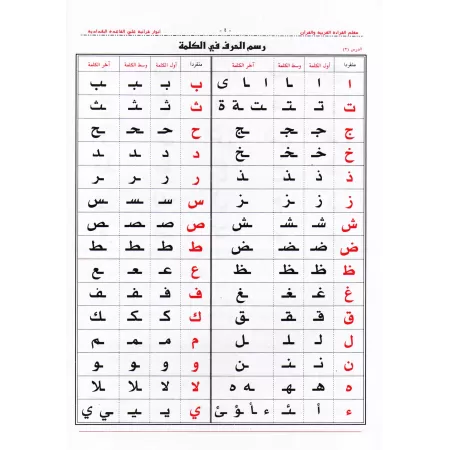 رسم الحرف في الكلمة
منفردا أول الكلمة وسط الكلمة آخر الكلمة منفردا أول الكلمة وسط الكلمة آخر الكلمة
ا ا ـا ـا ـى ب بـ ـبـ ـب
ت تـ ـتـ ـت ـة ة ث ثـ ـثـ ـث
ج جـ ـجـ ـج ح حـ ـحـ ـح
خ خـ ـخـ ـخ د د ـد ـد
ذ ذ ـذ ـذ ر ر ـر ـر
ز ز ـز ـز س سـ ـسـ ـس
ش شـ ـشـ ـش ص صـ ـصـ ـص
ض ضـ ـضـ ـض ط طـ ـطـ ـط
ظ ظـ ـظـ ـظ ع عـ ـعـ ـع
غ غـ ـغـ ـغ ف فـ ـفـ ـف
ق قـ ـقـ ـق ك كـ ـكـ ـك
ل لـ ـلـ ـل م مـ ـمـ ـم
ن نـ ـنـ ـن و و ـو ـو
ه هـ ـهـ ـه ه لا لا ـلا ـلا
ء أ ـئـ ء ـأ ـؤ ـئ ي يـ ـيـ ـي ي